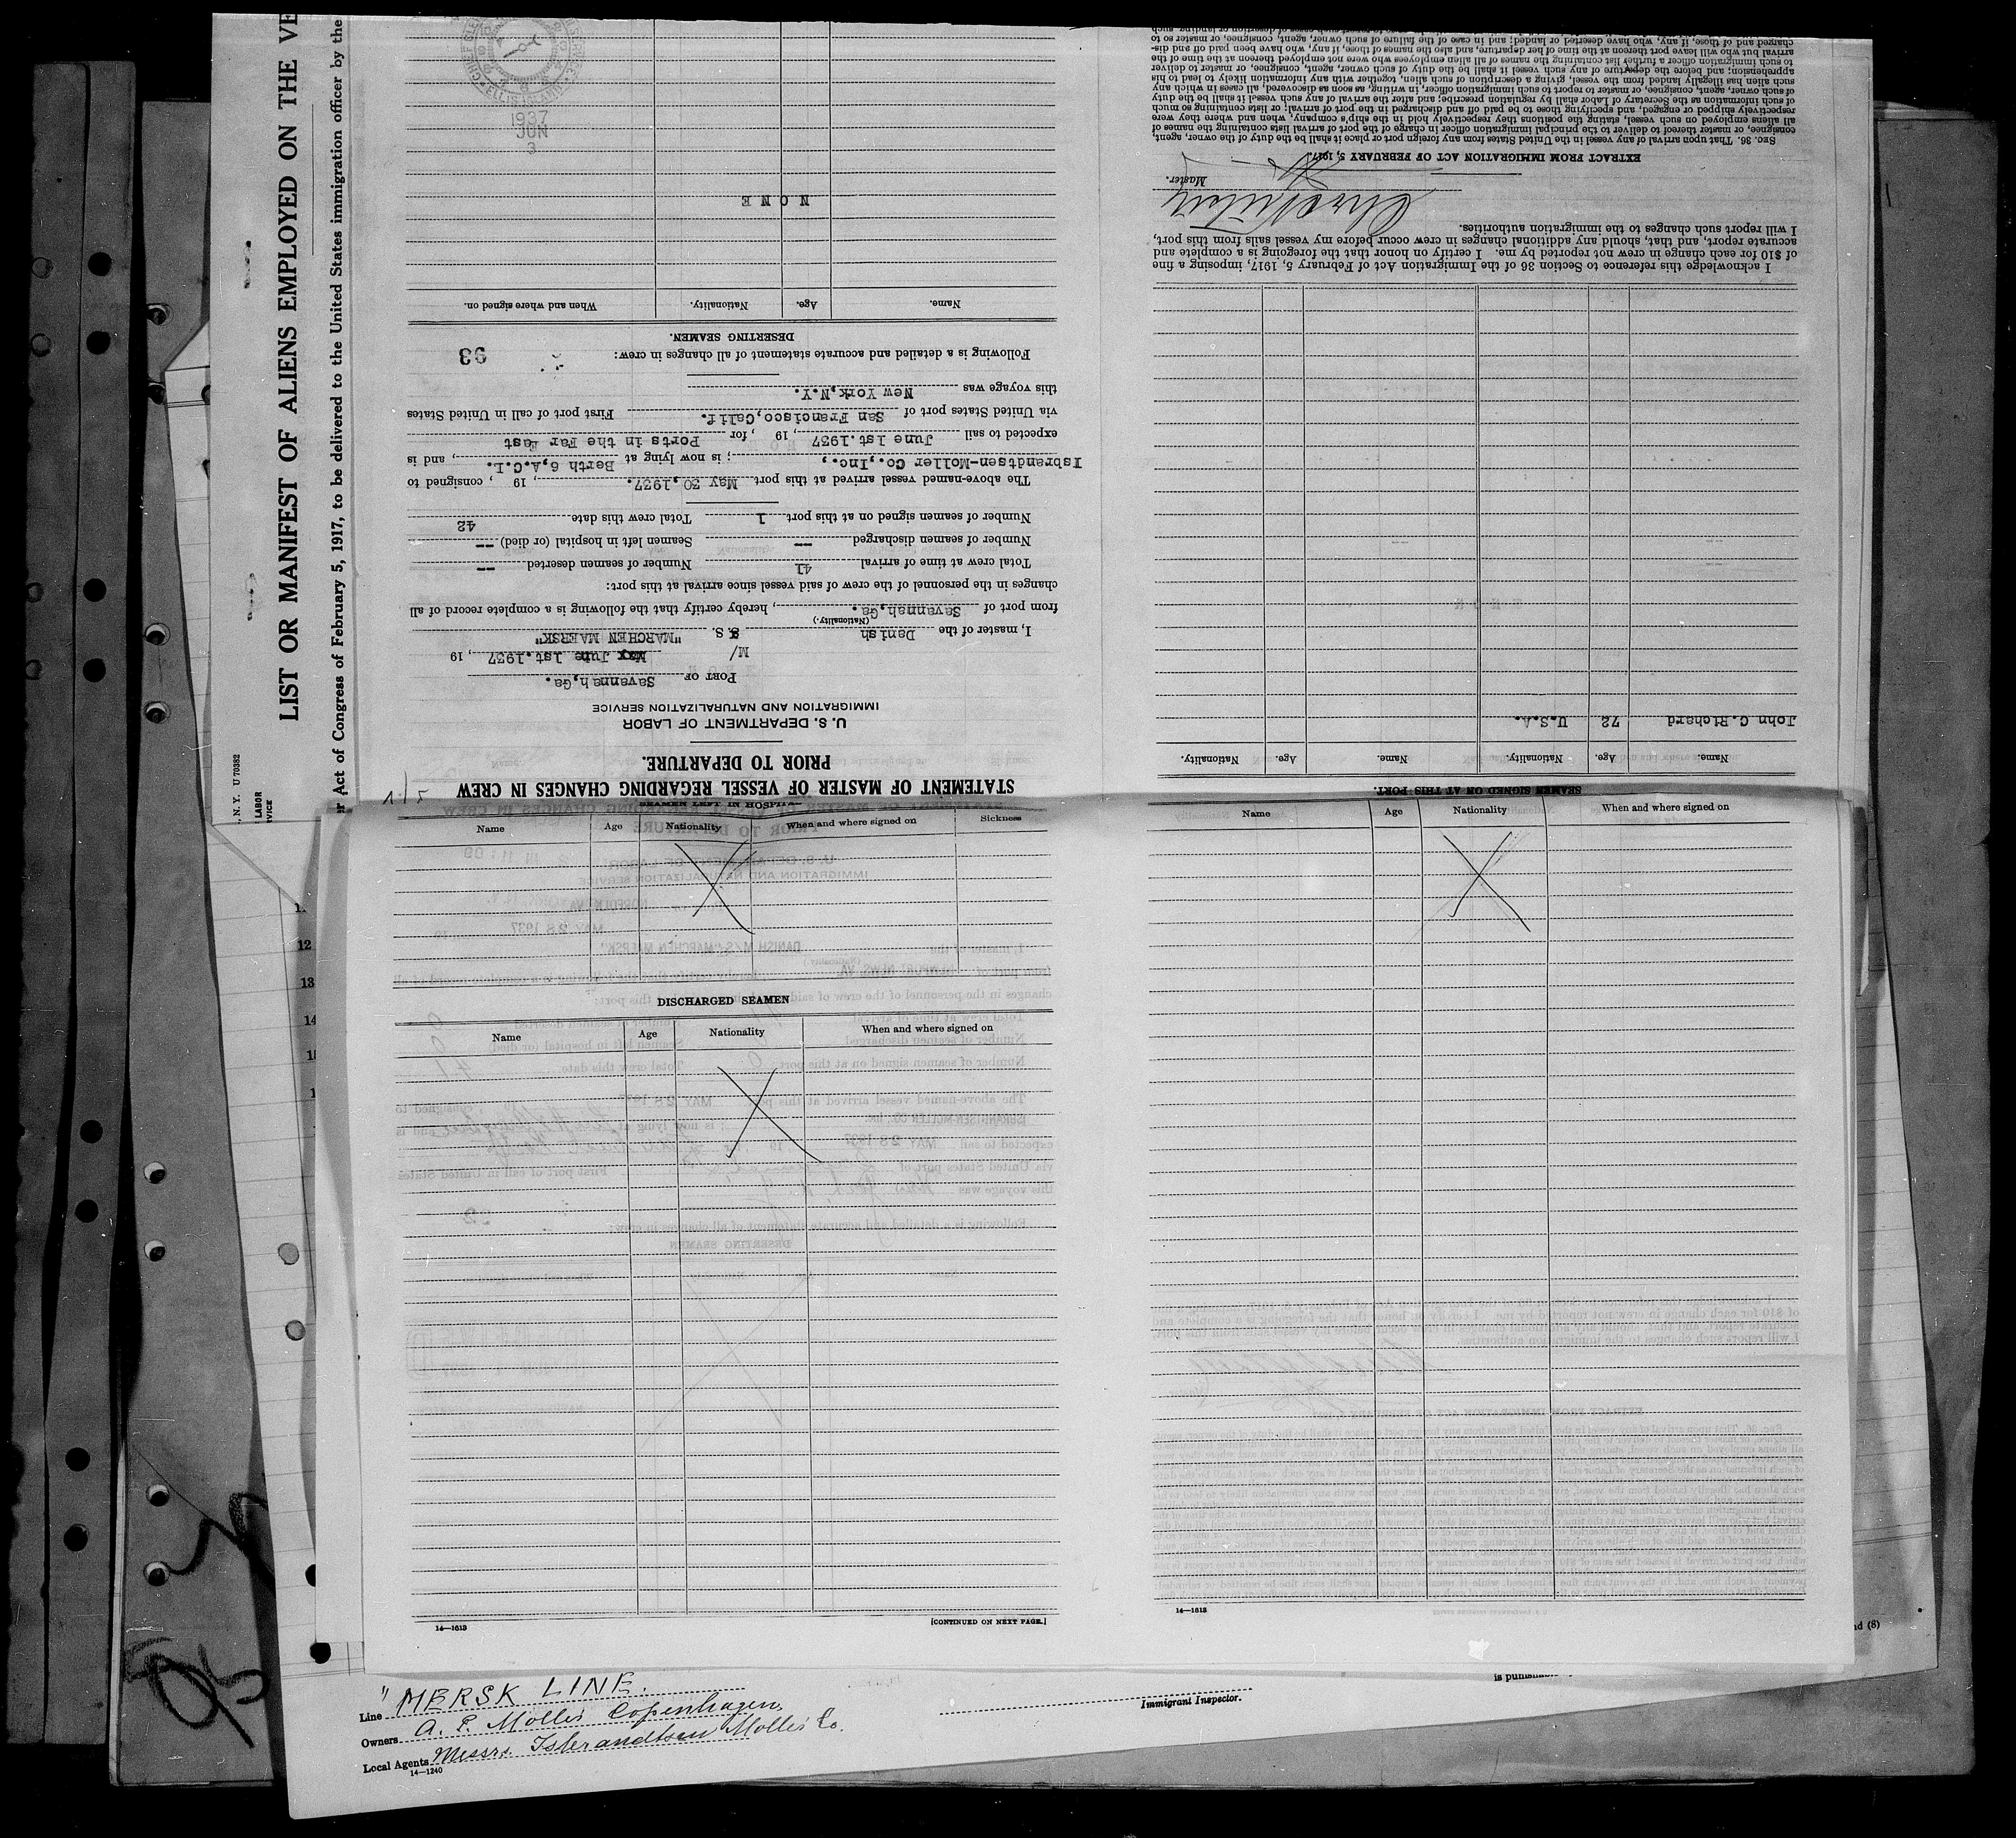 LIST OR MANIFEST OF ALIENS EMPLOYED ON THE VE
r Act of Congress of February 5, 1917, to be delivered to the United States immigration officer by the
, N. Y. U 70382
LABOR
VICE
STATEMENT OF MASTER OF VESSEL REGARDING CHANGES IN CREW
PRIOR TO DEPARTURE.
U. S. DEPARTMENT OF LABOR
IMMIGRATION AND NATURALIZATION SERVICE
PORT OF Savannah, Ga.
June 1st. 1937, 19
I, master of the Danish M/ S. S. "MARCHEN MAERSK"
(Nationality.)
from port of Savannah, Ga., hereby certify that the following is a complete record of all
changes in the personnel of the crew of said vessel since arrival at this port:
Total crew at time of arrival 41 Number of seamen deserted --
Number of seamen discharged -- Seamen left in hospital (or died) --
Number of seamen signed on at this port 1 Total crew this date 42
The above-named vessel arrived at this port May 30, 1937., 19 , consigned to
Isbrandtsen-Moller Co., Inc., ; is now lying at Berth 6, A.C.L. , and is
expected to sail June 1st. 1937 , 19 , for Ports in the Far East
via United States port of San Francisco, Calif. First port of call in United States
this voyage was New York, N.Y.
Following is a detailed and accurate statement of all changes in crew:
93
DESERTING SEAMEN.
Name. Age. Nationality. When and where signed on.
NONE
1937
JUN
3
SEAMEN SIGNED ON AT THIS PORT.
Name. Age. Nationality. Name. Age. Nationality.
John C. Richard 72 U.S.A.
I acknowledge this reference to Section 36 of the Immigration Act of February 5, 1917, imposing a fine
of $10 for each change in crew not reported by me. I certify on honor that the foregoing is a complete and
accurate report, and that, should any additional changes in crew occur before my vessel sails from this port,
I will report such changes to the immigration authorities.
Master.
EXTRACT FROM IMMIGRATION ACT OF FEBRUARY 5, 1917.
SEC. 36. That upon arrival of any vessel in the United States from any foreign port or place it shall be the duty of the owner, agent,
consignee, or master thereof to deliver to the principal immigration officer in charge of the port of arrival lists containing the names of
all aliens employed on such vessel, stating the positions they respectively hold in the ship's company, when and where they were
respectively shipped or engaged, and specifying those to be paid off and discharged in the port of arrival; or lists containing so much
of such information as the Secretary of Labor shall by regulation prescribe; and after the arrival of any such vessel it shall be the duty
of such owner, agent, consignee, or master to report to such immigration officer, in writing, as soon as discovered, all cases in which any
such alien has illegally landed from the vessel, giving a description of such alien, together with any information likely to lead to his
apprehension; and before the departure of any such vessel it shall be the duty of such owner, agent, consignee, or master to deliver
to such immigration officer a further list containing the names of all alien employees who were not employed thereon at the time of the
arrival but who will leave port thereon at the time of her departure, and also the names of those, if any, who have been paid off and dis-
charged and of those, if any, who have deserted or landed; and in case of the failure of such owner, agent, consignee, or master so to
SEAMEN LEFT IN HOSPITAL
Name Age Nationality When and where signed on Sickness
DISCHARGED SEAMEN
Name Age Nationality When and where signed on
14—1613 [CONTINUED ON NEXT PAGE.]
Name Age Nationality When and where signed on
14—1613
12
13
14
nd (8)
Line "MERSK LINE.
Owners A. P. Möller Copenhagen,
Local Agents Messrs Isbrandtsen Moller Co.
14—1240
Immigrant Inspector.